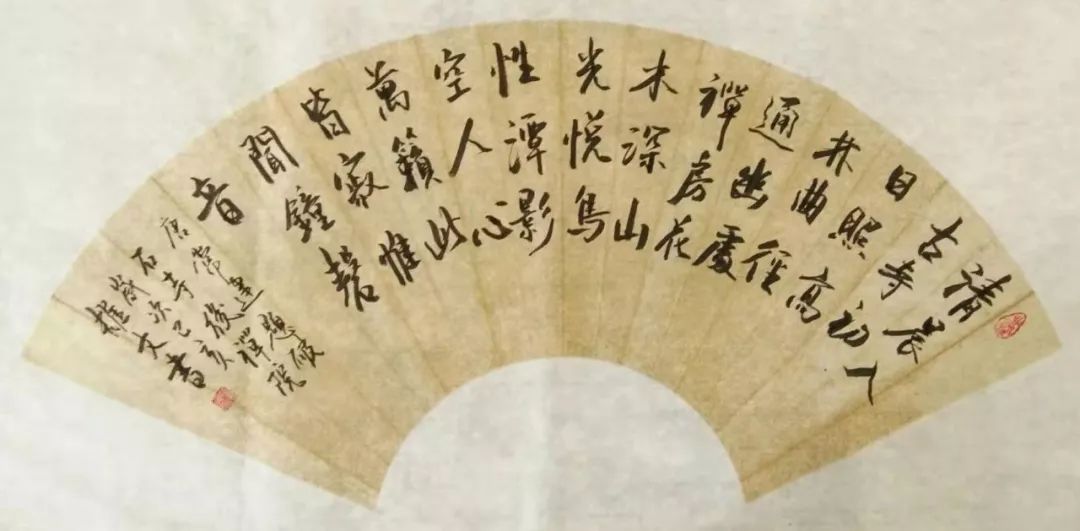 清晨入
古寺初
日照高
林曲徑
通幽處
禪房花
木深山
光悅鳥
性潭影
空人心
萬籟此
皆寂惟
聞鐘磬
音
唐常建題破
石寺後禪院
歲次己亥
文書